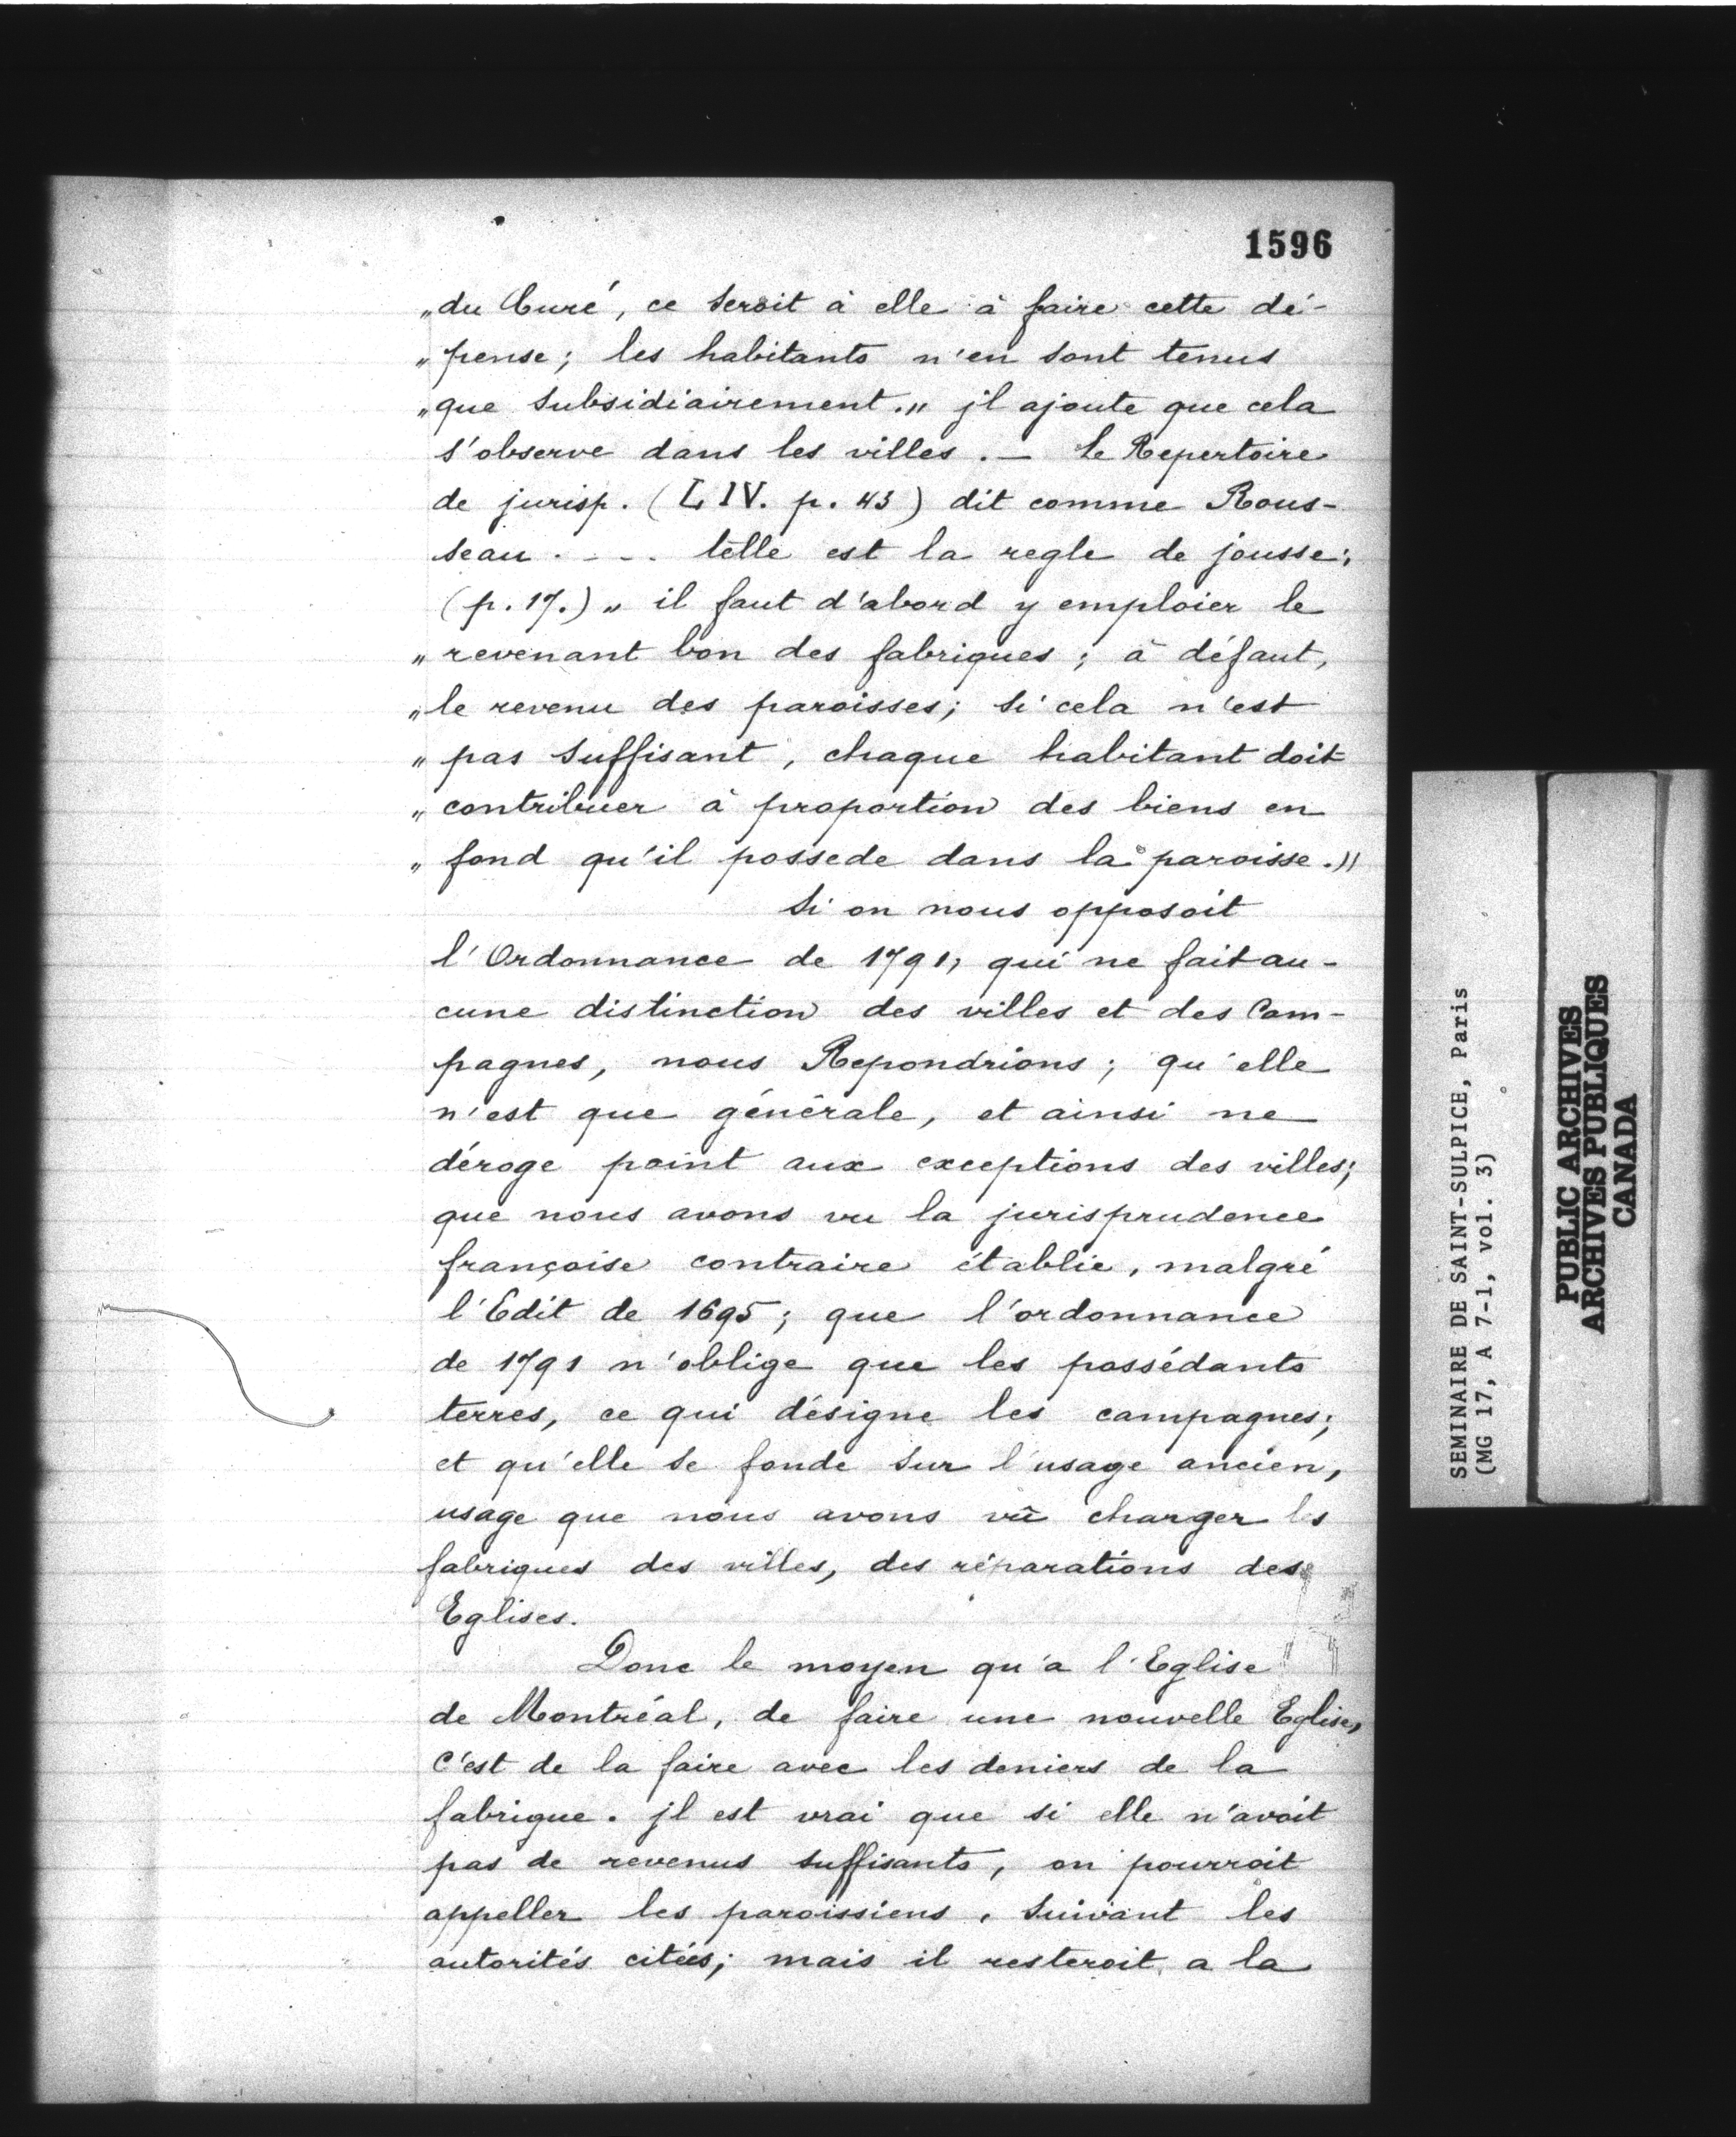 1596
„du Curé, ce seroit à elle à faire cette dé-
„pense; les habitants n'en sont tenus
„que subsidiairement.„ jl ajoute que cela
s'observe dans les villes. — Le Repertoire
de jurisp. (L IV. p. 43) dit comme Rous-
seau . - - . telle est la regle de jousse;
(p. 17.) „ il faut d'abord y emploier le
„revenant bon des fabriques; à défaut,
„le revenu des paroisses; si cela n'est
„pas suffisant, chaque habitant doit
„contribuer à proportion des biens en
„fond qu'il possede dans la paroisse.„
Si on nous opposoit
l'Ordonnance de 1791, qui ne fait au-
cune distinction des villes et des Cam-
pagnes, nous Repondrions; qu'elle
n'est que générale, et ainsi ne
déroge point aux exceptions des villes;
que nous avons vu la jurisprudence
françoise contraire établie, malgré
l'Edit de 1695; que l'ordonnance
de 1791 n'oblige que les possédants
terres, ce qui désigne les campagnes;
et qu'elle se fonde sur l'usage ancien,
usage que nous avons vû charger les
fabriques des villes, des réparations des
Eglises.
Donc le moyen qu'a l'Eglise
de Montréal, de faire une nouvelle Eglise,
C'est de la faire avec les deniers de la
fabrique. jl est vrai que si elle n'avoit
pas de revenus suffisants, on pourroit
appeller les paroissiens, suivant les
autorités citées; mais il resteroit a la
SEMINAIRE DE SAINT-SULPICE, Paris
(MG 17, A 7-1, vol. 3)
PUBLIC ARCHIVES
ARCHIVES PUBLIQUES
CANADA